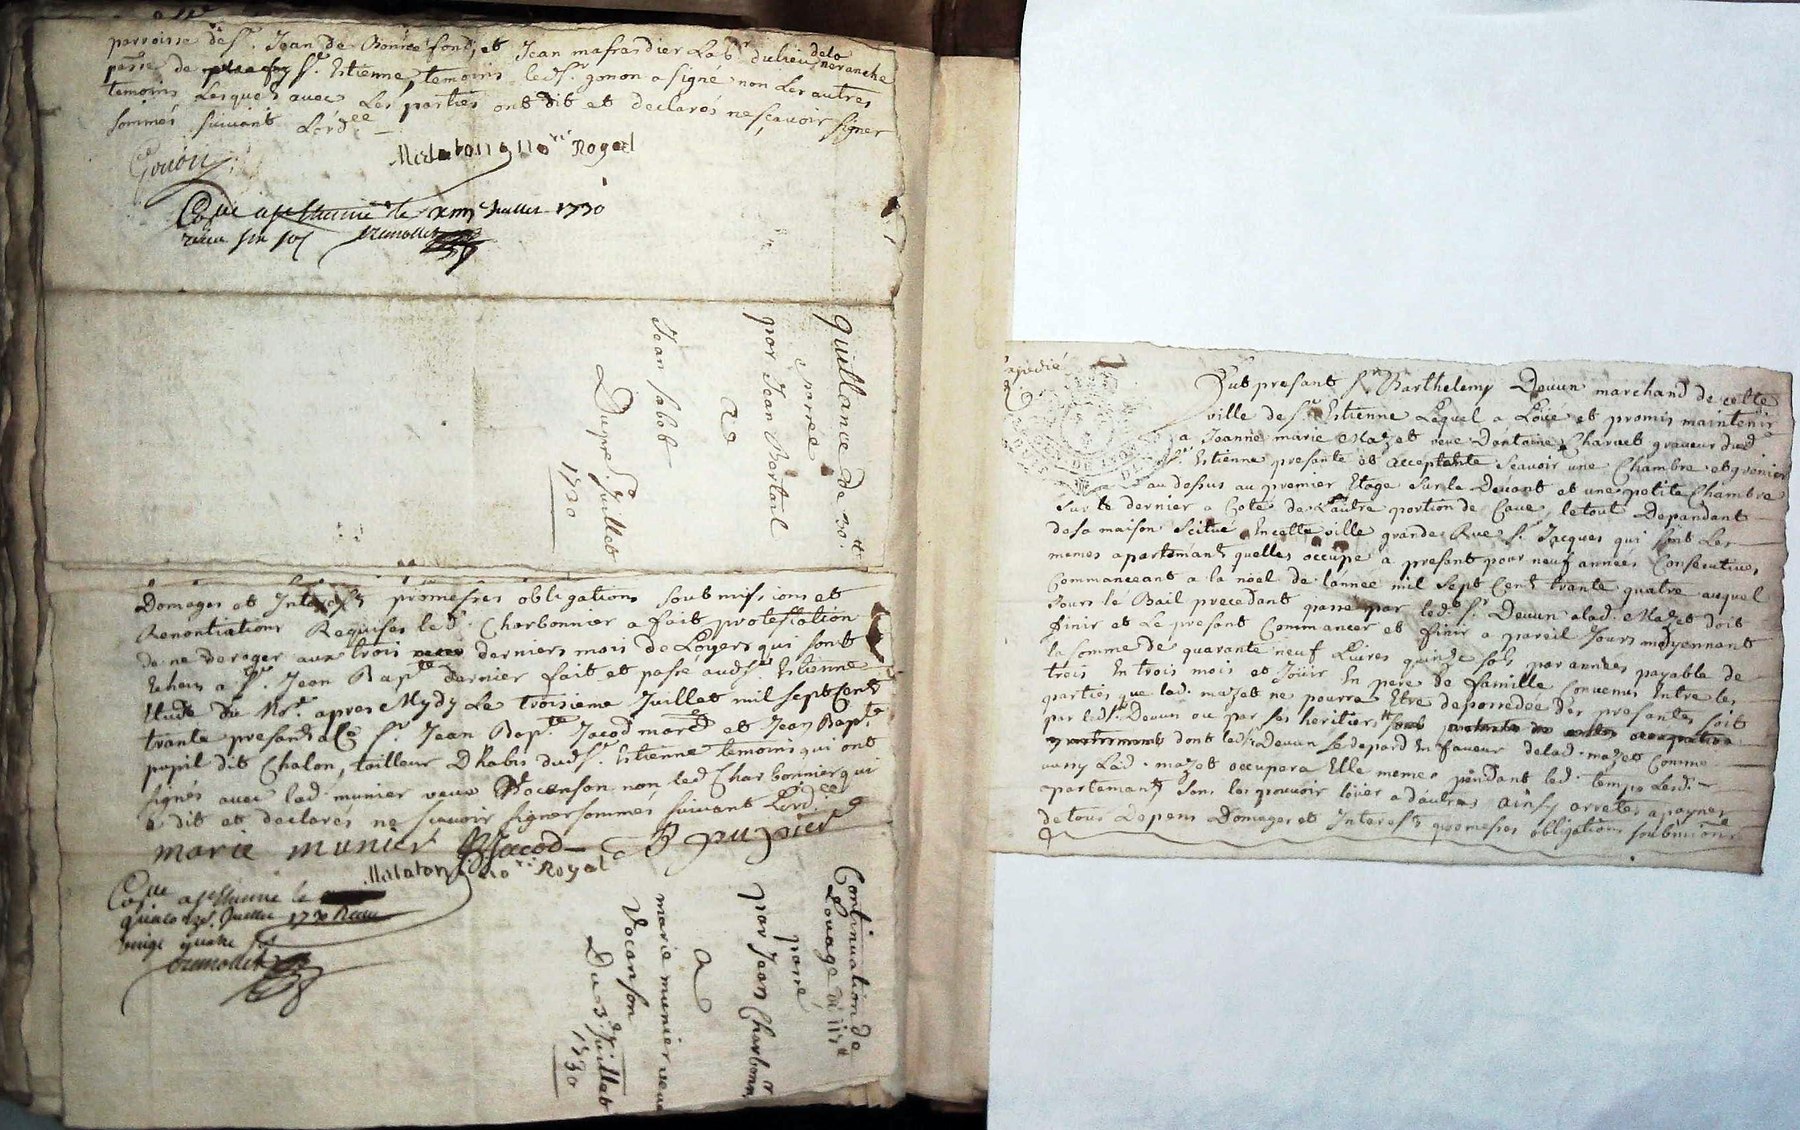 parroisse de St. Jean de Bonnefond, et Jean mafrasdier Labr. du lieu de la neranche
parse de St. Estienne, temoins led. Sr. gonon a signé non les autres
temoins Lesquels avec Les parties ont dit et declarés ne sçavoir signer
sommés suivant Lordce
Gonon
Malaton nore Royal
Coné a St Etienne le Juillet 1730
receu six sols
quittance de 30 tt
passee
par Jean Bertail
a
Jean sabot
Du pre. Juillet
1730
Domages et Interests promesses obligations soubmissions et
Renontiations Requises led. Charbonnier a fait protestation
de ne deroger aux trois derniers mois de Loyers qui sont
Echeus a St. Jean Bapte dernier fait et passé aud. St. Estienne
Etude du Nore. apres Mydy Le troisieme Juillet mil sept Cent
trante presents a Ce Sr. Jean Bapte. Jacod mard et Jean Bapte
pupil dit Chalon, tailleur Dhabis dud. St. Estienne temoins qui ont
signés avec lad. munier veuve Vocanson non led. Charbonnier qui
a dit et declarés ne sçavoir signer sommés suivant Lordce
marie munier Jacod B pupier
Malaton nore Royal
Coné a St Etienne le
Juillet 1730 Receu
vingt quatre sols
Continuation de
Louage de
passé
par Jean Charbonnr
a
marie munier veuve
Vocanson
Du 3e. Juillet
1730
Expedié
Fut present Sr. Barthelemy Devun marchand de cette
ville de St. Estienne Lequel a Loué et promis maintenir
a Joanne marie Mazet veve Dantoine Charvet graveur dud.
St. Estienne presante et acceptante sçavoir une Chambre et grenier
au dessus au premier Etage sur le Devant et une petite Chambre
sur le dernier a Coté de Lautre portion de Cave, le tout Dependant
de sa maison scitué En cette ville grande Rue St. Jacques qui sont Les
memes apartemants quelles occupe a present pour neuf années Consecutives
Commanceant a la noel de lannée mil sept Cent trante quatre auquel
Jours le Bail precedant passé par led. Sr. Devun a lad. Mazet doit
finir et Le present Commancer et finir a pareil Jours moyennant
la somme de quarante neuf Livres quinze sols par années payable de
trois En trois mois et Jouir En pere de famille Convenus Entre les
parties que lad. mazet ne pourra Etre depossedée des presantes soit
par led. Sr. Devun ou par ses heritiers
dont led. Sr. Devun se depard En faveur de lad. mazet Comme
aussy Lad. mazet occupera Elle meme pendant led. temps Lesd.
apartemants sans les pouvoir loüer a dautres ainsy arretés a paynes
de tous Depens Domages et Interests promesses obligations soubmissions